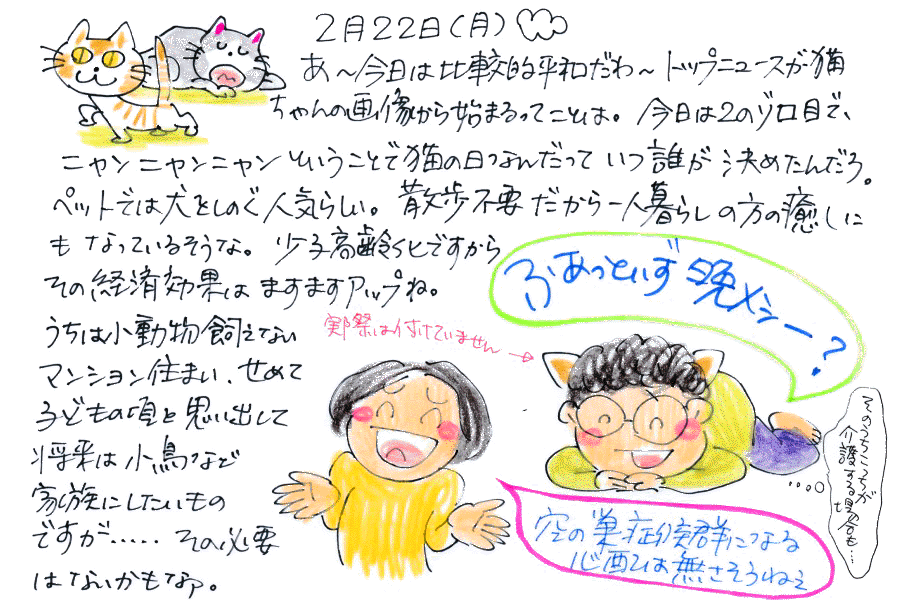 2月22日(月)
あ〜今日は比較的平和だわ〜トップニュースが猫
ちゃんの画像から始まるってことは。今日は2のゾロ目で、
ニャンニャンニャンということで猫の日なんだっていつ誰が決めたんだろ。
ペットでは犬をしのぐ人気らしい。散歩不要だから一人暮らしの方の癒しに
もなっているそうな。少子高齢化ですから
その経済効果はますますアップね。
うちは小動物飼えない
マンション住まい、せめて
子どもの頃を思い出して
将来は小鳥など
家族にしたいもの
ですが……その必要
はないかもなァ。
実際は付けていません→
ふあっといず晩メシー?
空の巣症候群になる
心配は無さそうねぇ
そのうちこっちが
介護する羽目も…